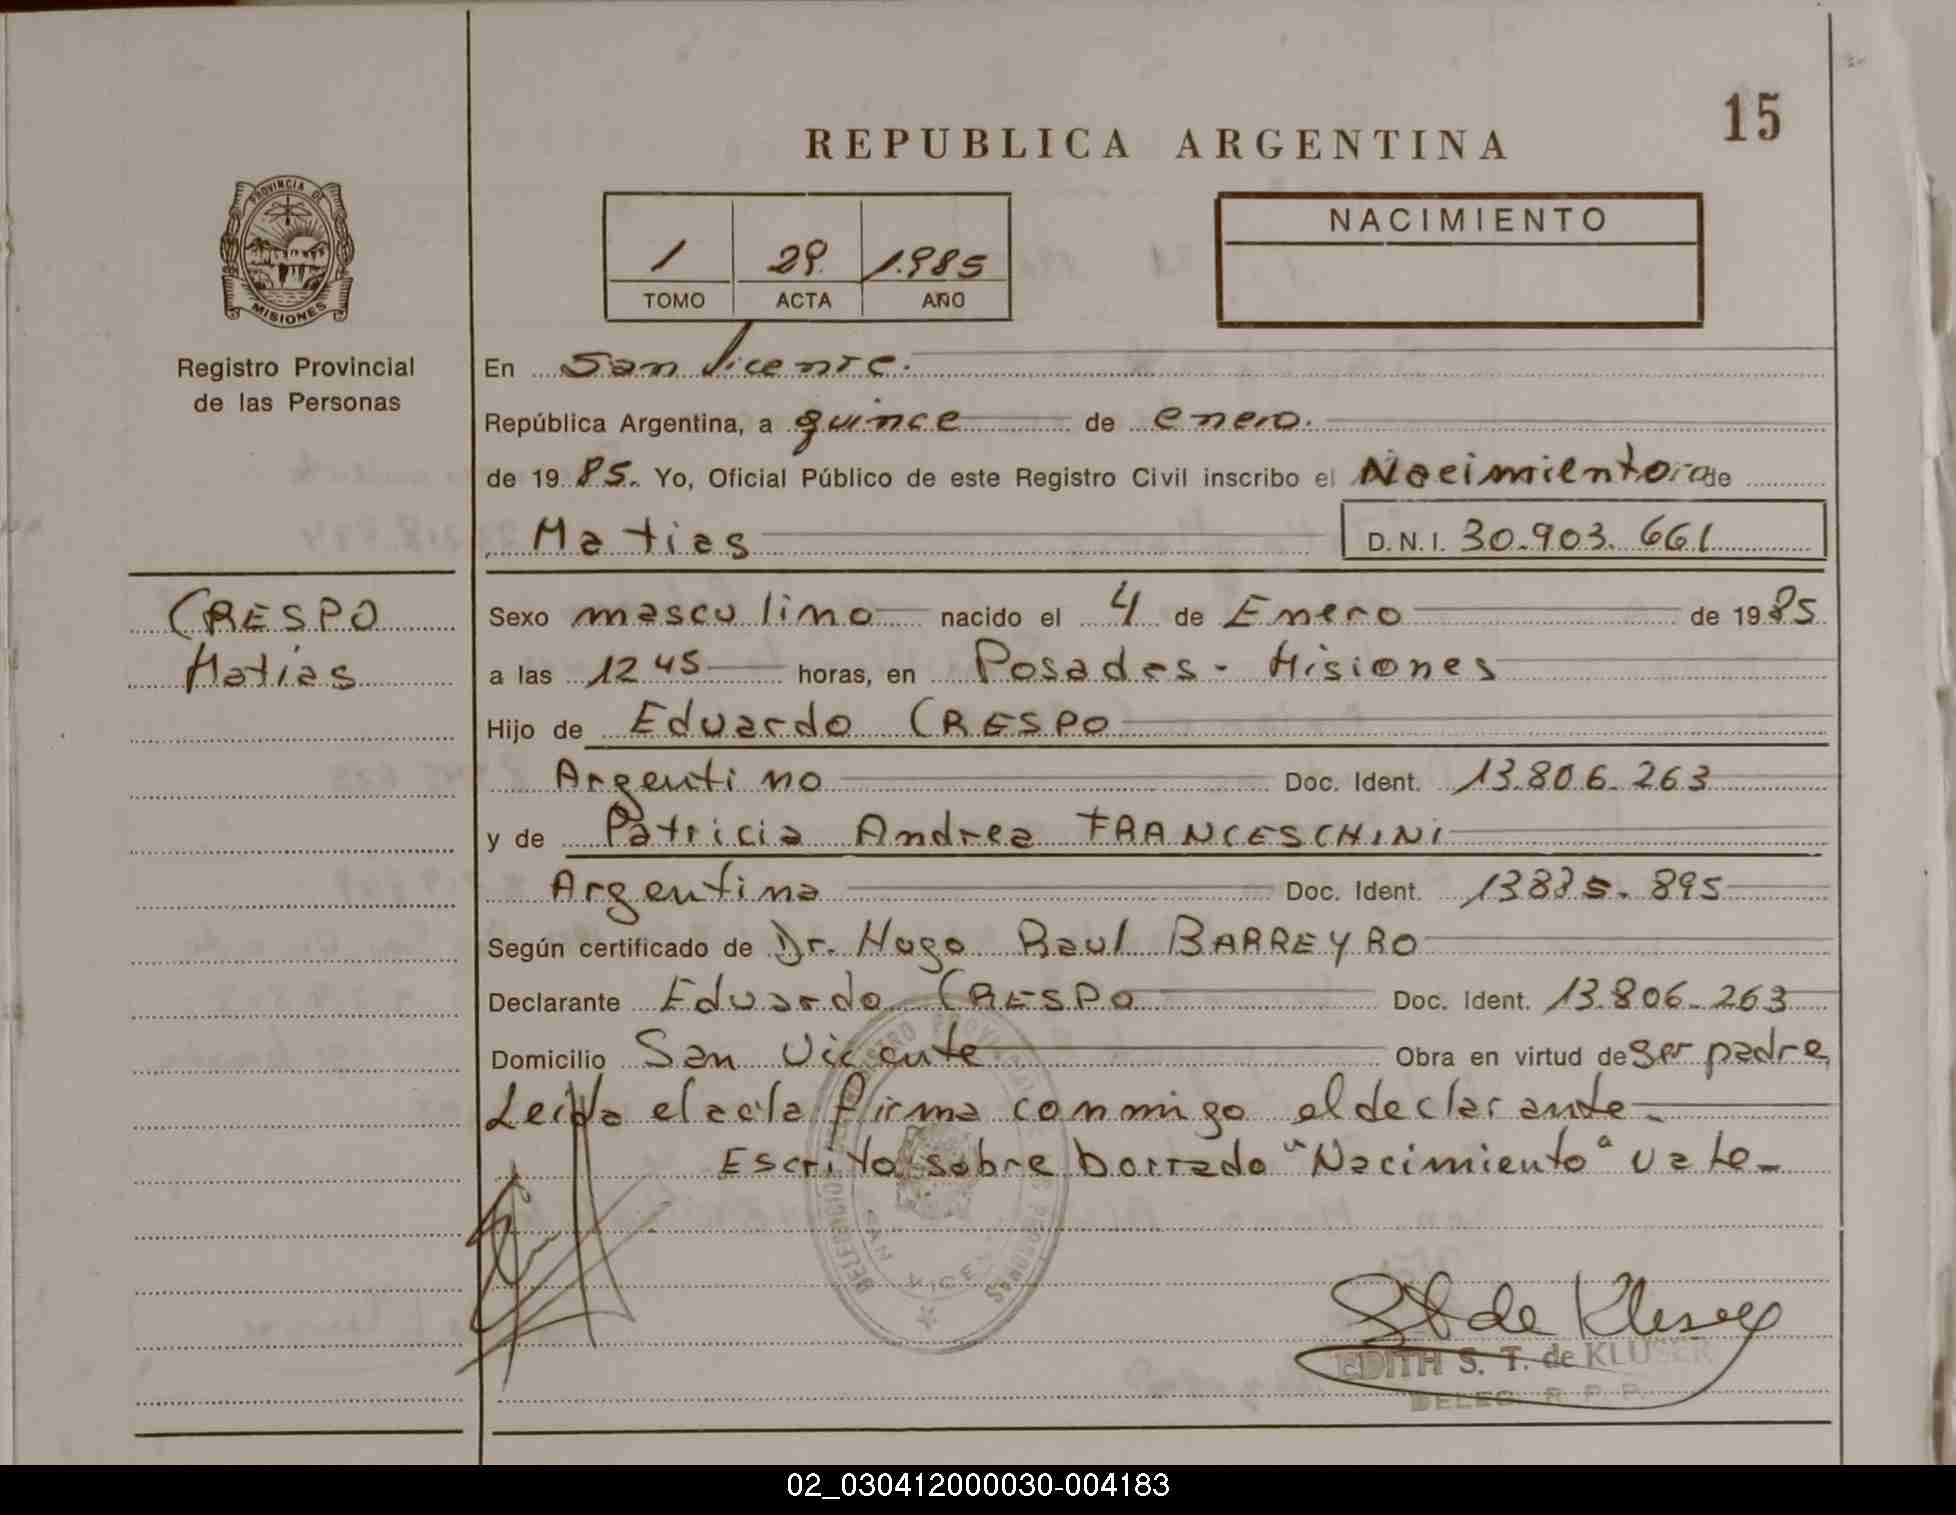 15
REPUBLICA ARGENTINA
PROVINCIA DE
MISIONES
1 29 1.985
TOMO ACTA AÑO
NACIMIENTO
Registro Provincial
de las Personas
En San Vicente.
República Argentina, a quince de enero.
de 19 85. Yo, Oficial Público de este Registro Civil inscribo el Nacimiento de
Matias D.N.I. 30.903.661
CRESPO
Matias
Sexo masculino nacido el 4 de Enero de 1985
a las 12 45 horas, en Posadas - Misiones
Hijo de Eduardo CRESPO
Argentino Doc. Ident. 13.806.263
y de Patricia Andrea FRANCESCHINI
Argentina Doc. Ident. 895
Según certificado de Dr. Hugo Raul BARREYRO
Declarante Eduardo CRESPO Doc. Ident. 13.806.263
Domicilio San Vicente Obra en virtud de ser padre
Leida el acta firma conmigo el declarante.
Escrito sobre borrado "Nacimiento" vale-
SAN VICENTE
EDITH S. T. de KLUSER
DELEG. R. P. P.
02_030412000030-004183